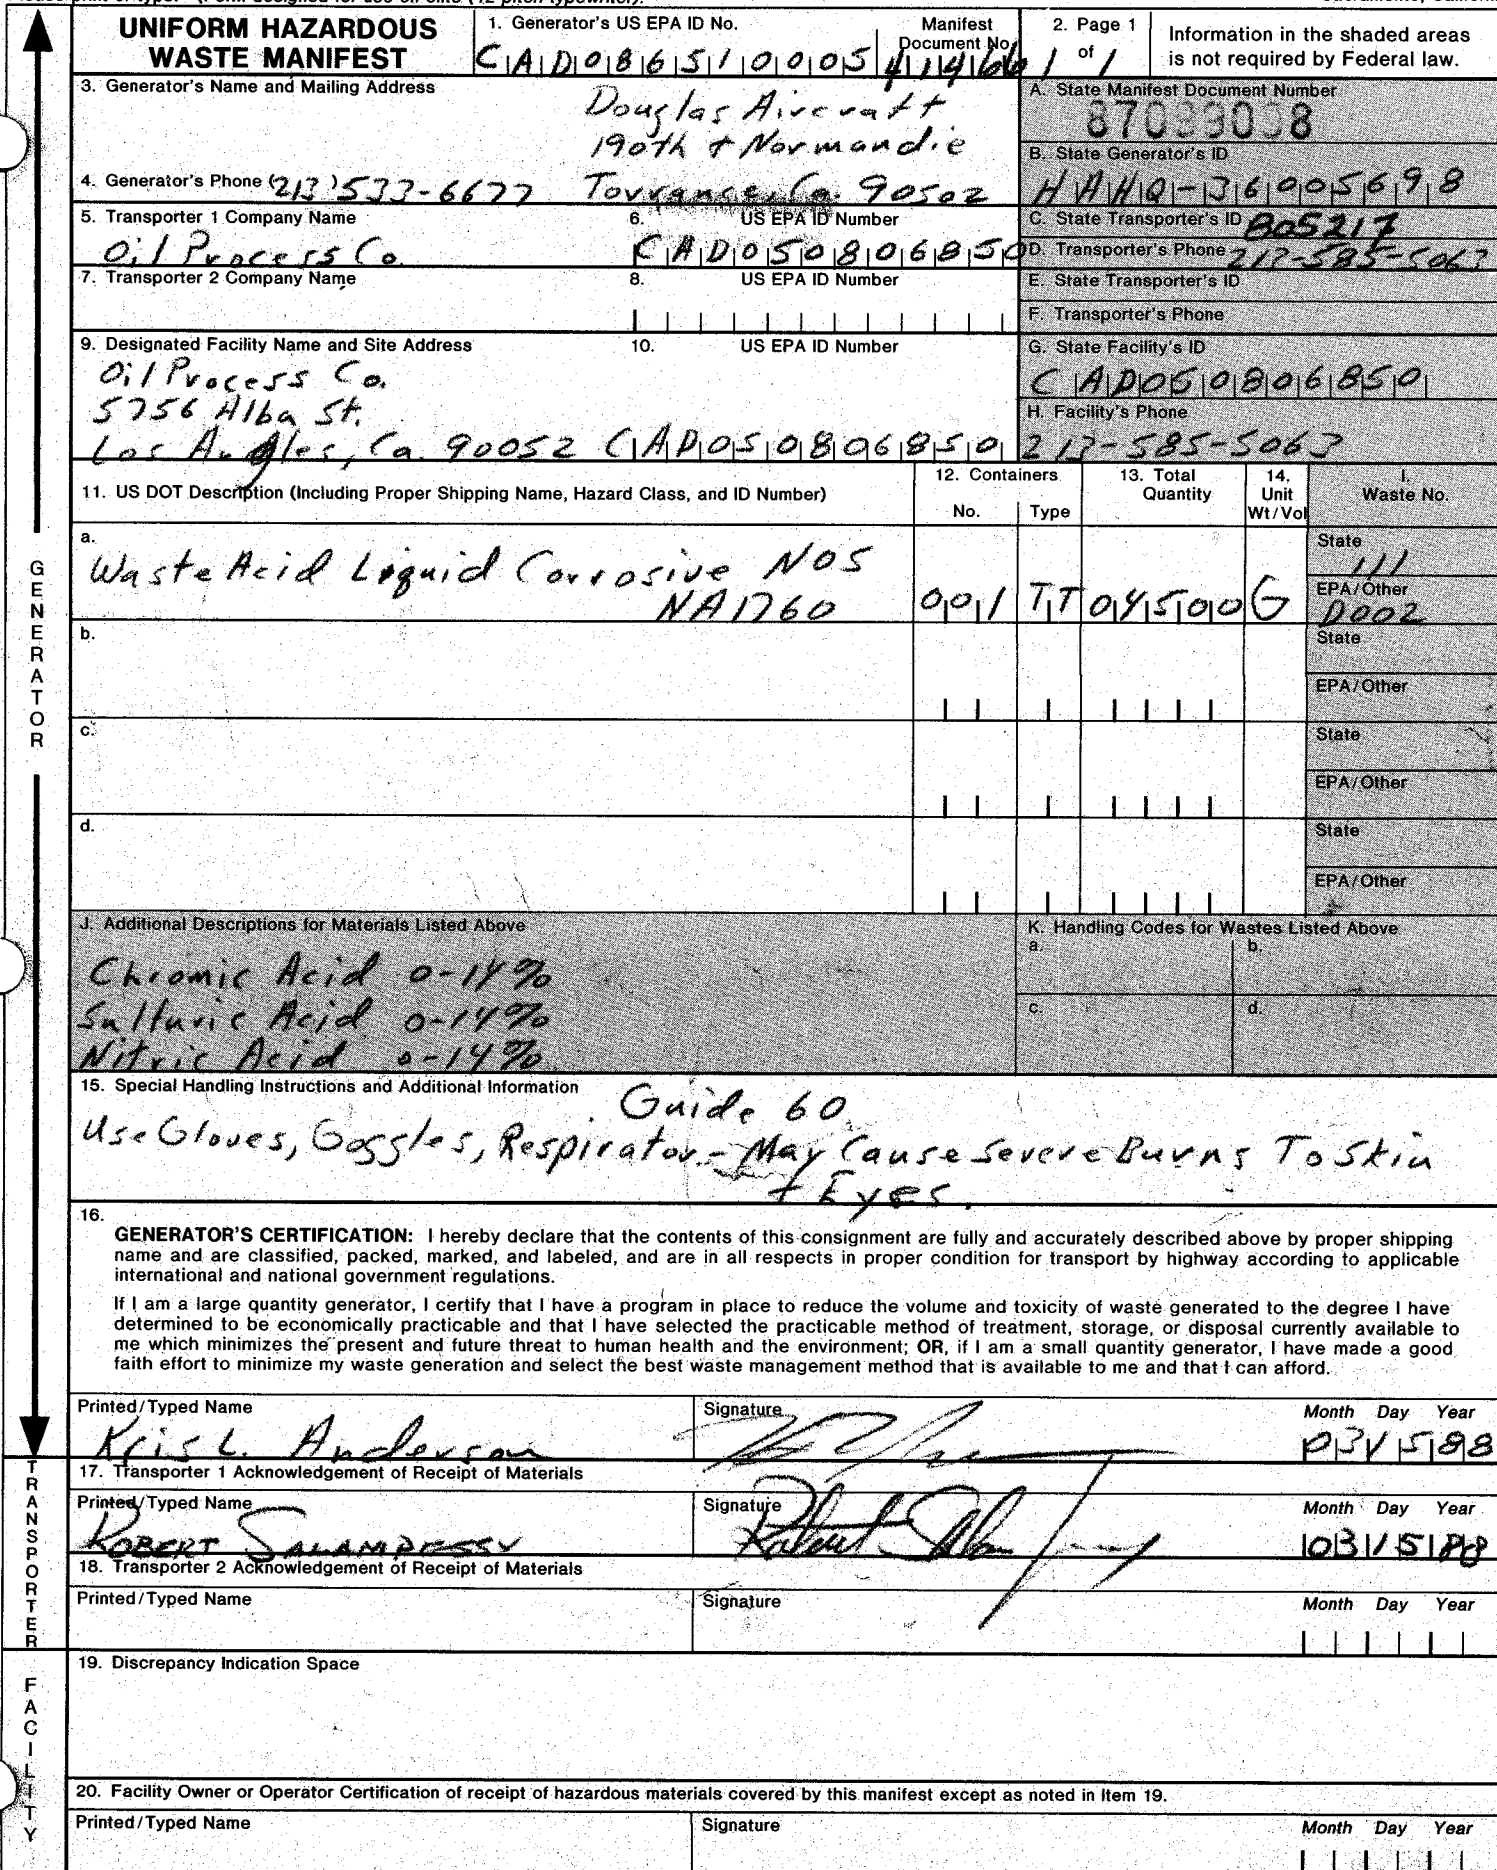 UNIFORM HAZARDOUS
WASTE MANIFEST
1. Generator's US EPA ID No.
CAD086510005
Manifest
Document No.
41466
2. Page 1
1 of 1
Information in the shaded areas
is not required by Federal law.
3. Generator's Name and Mailing Address
Douglas Aircraft
190th + Normandie
Torrance, Ca. 90502
4. Generator's Phone (213) 533-6677
A. State Manifest Document Number
B. State Generator's ID
HAHQ-36005698
5. Transporter 1 Company Name
Oil Process Co.
6. US EPA ID Number
CAD050806850
C. State Transporter's ID 805217
D. Transporter's Phone 213-585-5063
7. Transporter 2 Company Name
8. US EPA ID Number
E. State Transporter's ID
F. Transporter's Phone
9. Designated Facility Name and Site Address
Oil Process Co.
5756 Alba St.
Los Angles, Ca. 90052
10. US EPA ID Number
CAD050806850
G. State Facility's ID
CAD050806850
H. Facility's Phone
213-585-5063
11. US DOT Description (Including Proper Shipping Name, Hazard Class, and ID Number)
12. Containers
No. Type
13. Total
Quantity
14.
Unit
Wt/Vol
I.
Waste No.
a.
Waste Acid Liquid Corrosive NOS
NA1760
001 TT 04500 G
State
111
EPA/Other
D002
b.
State
EPA/Other
c.
State
EPA/Other
d.
State
EPA/Other
J. Additional Descriptions for Materials Listed Above
Chromic Acid 0-14%
Sulfuric Acid 0-14%
Nitric Acid 0-14%
K. Handling Codes for Wastes Listed Above
a. b.
c. d.
15. Special Handling Instructions and Additional Information
Guide 60
Use Gloves, Goggles, Respirator - May Cause Severe Burns To Skin
+ Eyes.
16.
GENERATOR'S CERTIFICATION: I hereby declare that the contents of this consignment are fully and accurately described above by proper shipping
name and are classified, packed, marked, and labeled, and are in all respects in proper condition for transport by highway according to applicable
international and national government regulations.
If I am a large quantity generator, I certify that I have a program in place to reduce the volume and toxicity of waste generated to the degree I have
determined to be economically practicable and that I have selected the practicable method of treatment, storage, or disposal currently available to
me which minimizes the present and future threat to human health and the environment; OR, if I am a small quantity generator, I have made a good
faith effort to minimize my waste generation and select the best waste management method that is available to me and that I can afford.
Printed/Typed Name
Kris L. Anderson
Signature
Month Day Year
031588
17. Transporter 1 Acknowledgement of Receipt of Materials
Printed/Typed Name
ROBERT
Signature
Month Day Year
031588
18. Transporter 2 Acknowledgement of Receipt of Materials
Printed/Typed Name
Signature
Month Day Year
19. Discrepancy Indication Space
20. Facility Owner or Operator Certification of receipt of hazardous materials covered by this manifest except as noted in Item 19.
Printed/Typed Name
Signature
Month Day Year
GENERATOR
TRANSPORTER
FACILITY